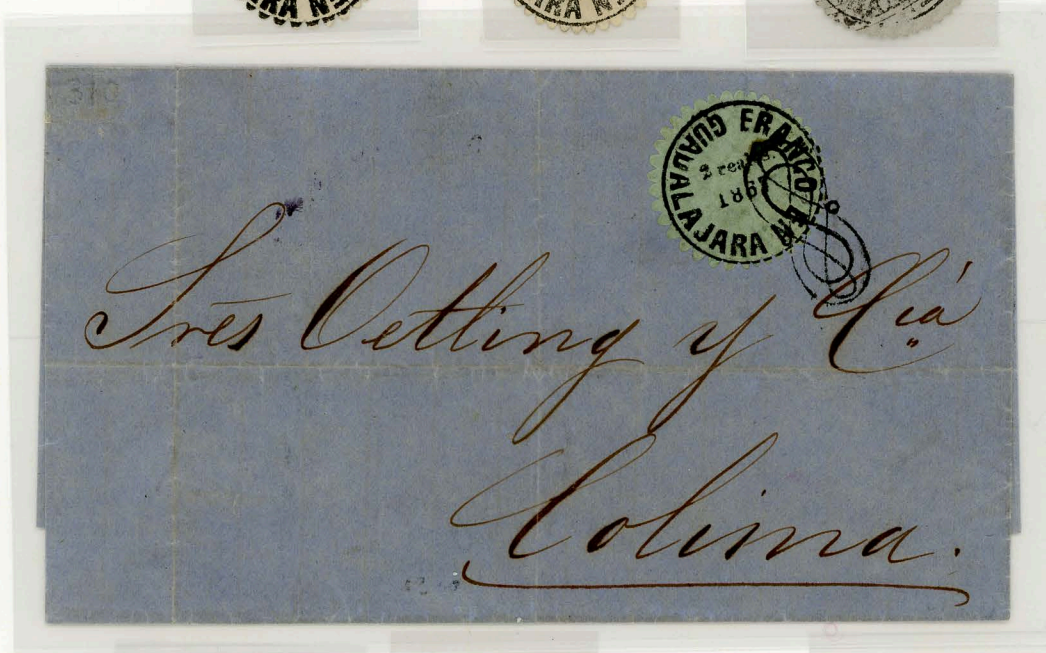 FRANCO EN
GUADALAJARA
2 reales.
186
Srēs Oetling y Ciá
Colima.